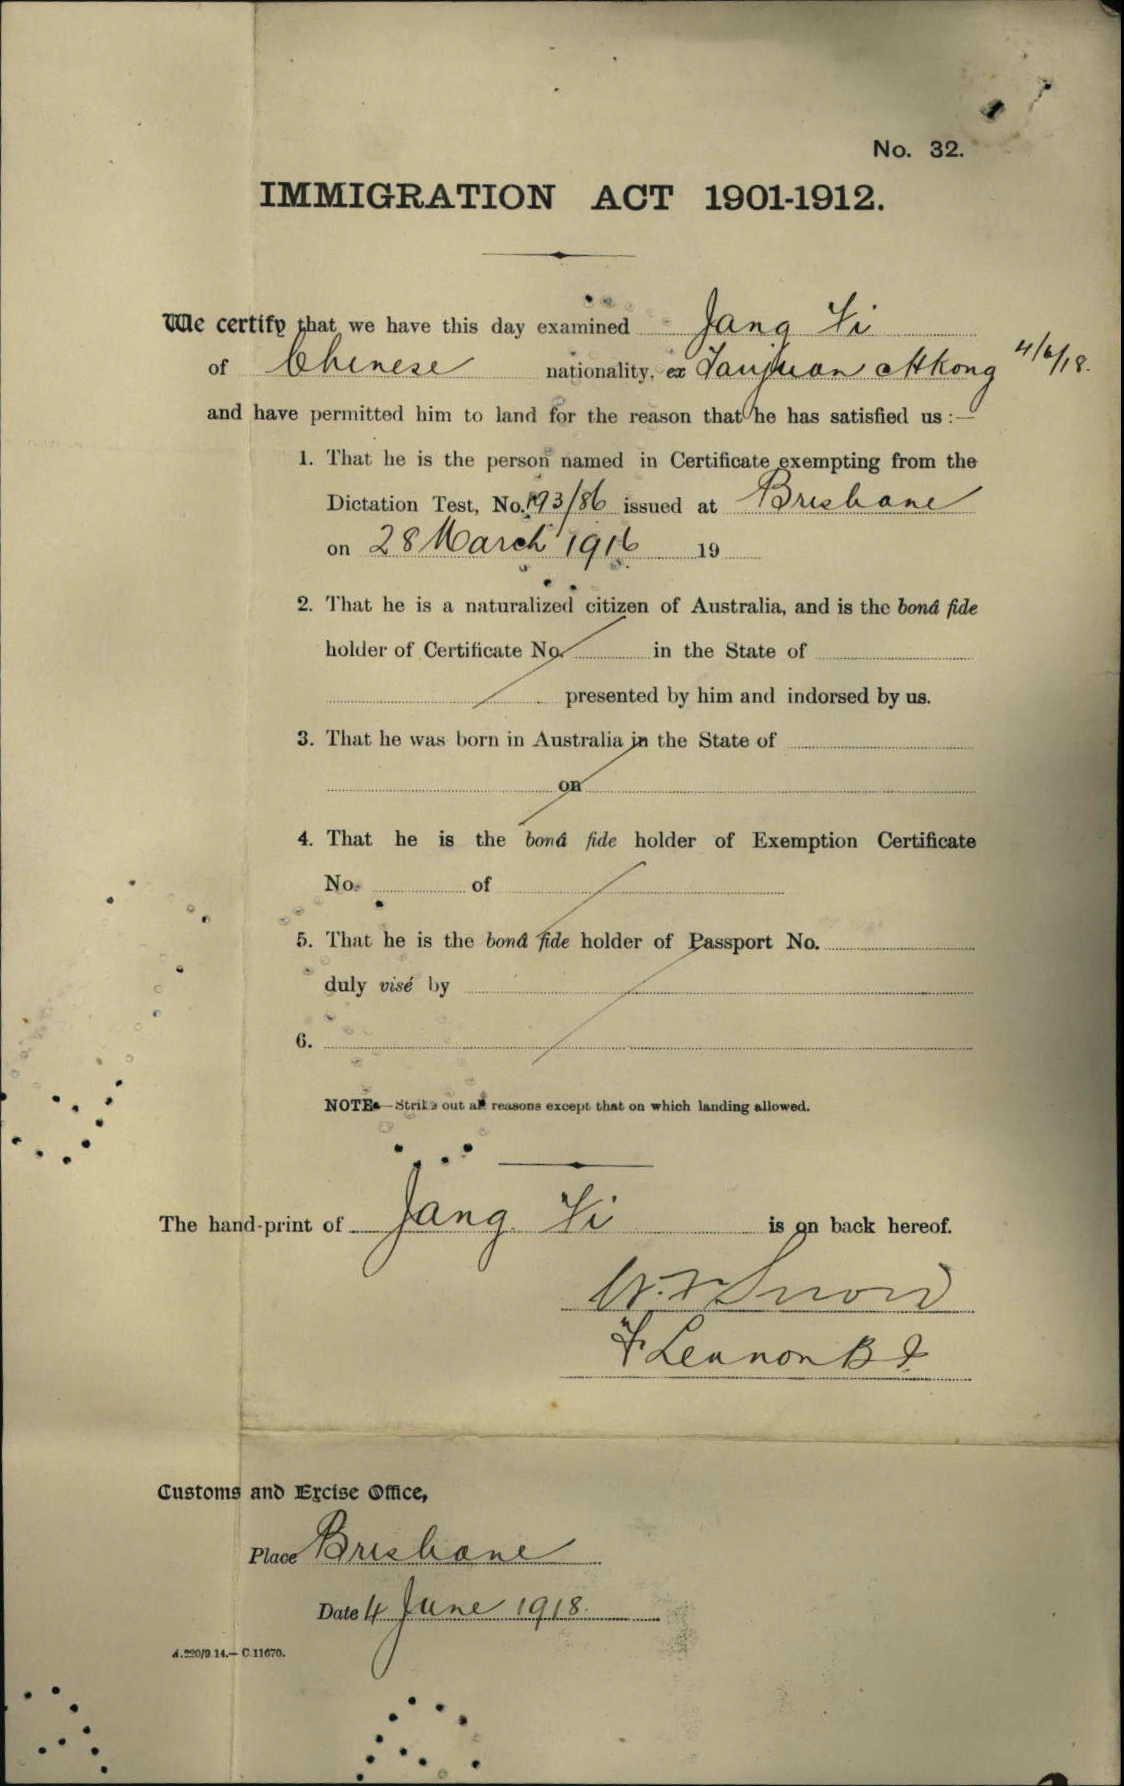 No. 32.
IMMIGRATION ACT 1901-1912.
We certify that we have this day examined Jang Yi
of Chinese nationality, ex Taiyuan Hkong 4/6/18.
and have permitted him to land for the reason that he has satisfied us :—
1. That he is the person named in Certificate exempting from the
Dictation Test, No. 193/86 issued at Brisbane
on 28 March 1916 19
2. That he is a naturalized citizen of Australia, and is the bonâ fide
holder of Certificate No. in the State of
presented by him and indorsed by us.
3. That he was born in Australia in the State of
on
4. That he is the bonâ fide holder of Exemption Certificate
No. of
5. That he is the bonâ fide holder of Passport No.
duly visé by
6.
NOTE.—Strike out all reasons except that on which landing allowed.
The hand-print of Jang Yi is on back hereof.
W. F Snow
F Lennon B I.
Customs and Excise Office,
Place Brisbane
Date 4 June 1918.
A.220/9.14.— C.11670.